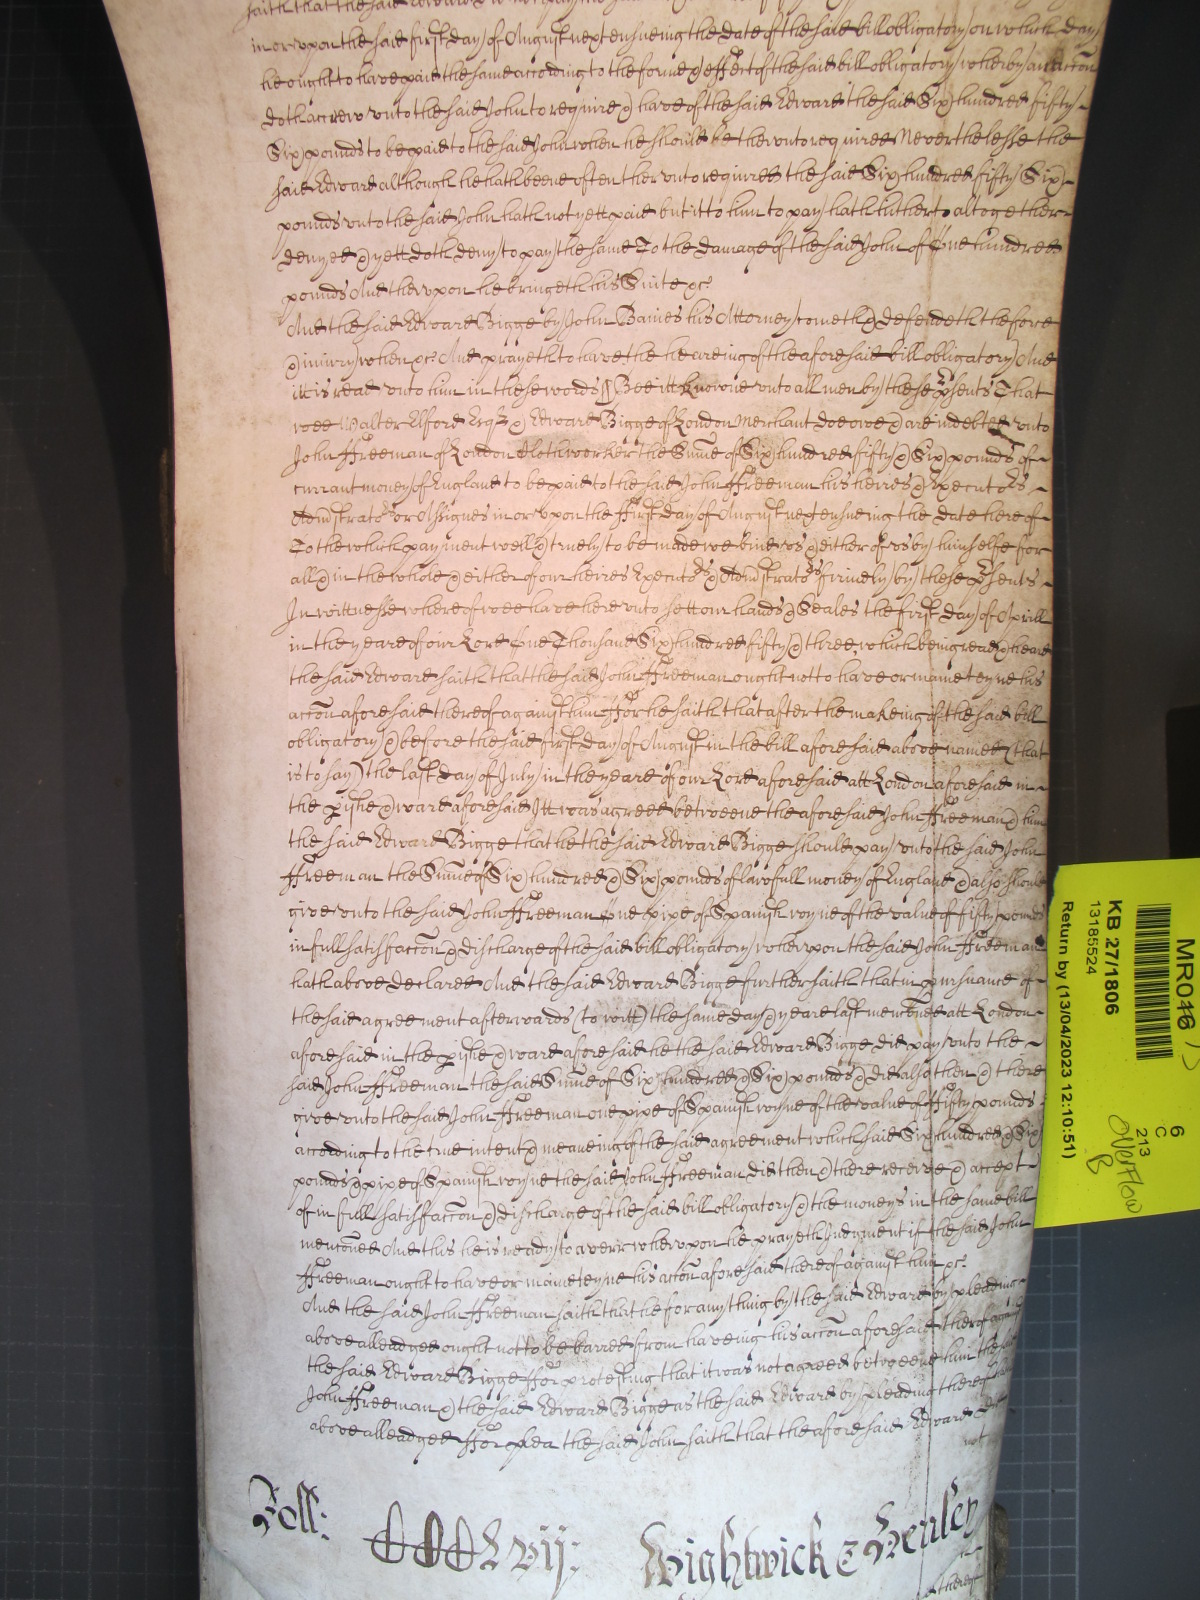 saith that the said Edward
in or vpon the said first day of August next ensueing the date of the said bill obligatory on which day
he ought to have paid the same according to the forme & effect of the said bill obligatory wherby an accon
doth accrew vnto the said John to require & have of the said Edward the said Six hundred fifty
Six pounds to be paid to the said John when he should be therevnto required Neverthelesse the
said Edward although he hath beene often therevnto required the said Six hundred fifty Six
pounds vnto the said John hath not yett paid but it to him to pay hath hitherto altogether
denyed & yett doth deny to pay the same To the damage of the said John of One hundred
pounds And therevpon he bringeth his Suite &c
And the said Edward Bigge by John Baines his Attorney cometh & defendeth the force
& iniury when &c And prayeth to have the heareing of the aforesaid bill obligatory And
itt is read vnto him in these words Bee itt knowne vnto all men by these psents That
wee Walter Elford Esqr & Edward Bigge of London Merchant doe owe & are indebted vnto
John Ffreeman of London Clothworker the Sume of Six hundred fifty & Six pounds of
currant money of England to be paid to the said John Ffreeman his heires Executors
Administrators or Assignes in or vpon the First day of August next ensueing the date hereof
To the which payment well & truely to be made we bind vs & either of vs by himselfe for
all & in the whole & either of our heires Executors & Administrators firmely by these psents
In wittnesse whereof wee have here vnto sett our hands & Seales the first day of Aprill
in the yeare of our Lord One Thousand Six hundred fifty & three, which being read & heard
the said Edward saith that the said John Ffreeman ought not to have or mainteyne his
accon aforesaid thereof against him Ffor he saith that after the makeing of the said bill
obligatory & before the said first day of August in the bill aforesaid above named (that
is to say) the last day of July in the yeare of our Lord aforesaid att London aforesaid in
the pishe & ward aforesaid Itt was agreed betweene the aforesaid John Ffreeman & him
the said Edward Bigge that he the said Edward Bigge should pay vnto the said John
Ffreeman the Sume of Six hundred & Six pounds of lawfull money of England & also should
give vnto the said John Ffreeman One pipe of Spanish wyne of the value of fifty pounds
in full satisfaccon & discharge of the said bill obligatory wherevpon the said John Ffreeman
hath above declared And the said Edward Bigge further saith that in pursuance of
the said agreement afterwards (to witt) the same day & yeare last menconed att London
aforesaid in the pishe & ward aforesaid he the said Edward Bigge did pay vnto the
said John Ffreeman the said Sume of Six hundred & Six pounds & did also then & there
give vnto the said John Ffreeman one pipe of Spanish wyne of the value of Fifty pounds
according to the true intent & meaneing of the said agreement which said Six hundred & Six
pounds & pipe of Spanish wyne the said John Ffreeman did then & there receive & accept
of in full satisfaccon & discharge of the said bill obligatory & the moneys in the same bill
menconed And this he is ready to averr wherevpon he prayeth Judgment if the said John
Ffreeman ought to have or mainteyne his accon aforesaid thereof against him &c
And the said John Ffreeman saith that he for any thing by the said Edward by pleading
above alleadged ought not to be barred from haveing his accon aforesaid thereof against
the said Edward Bigge Ffor protesting that it was not agreed betweene him the said
John Ffreeman & the said Edward Bigge as the said Edward by pleading thereof
above alleadged Ffor plea the said John saith that the aforesaid Edward did
not
Roll: CCCLvij: Wightwick & Henley
MR046
KB 27/1806
13185524
Return by (13/04/2023 12:10:51)
6
C
213
Overflow
B